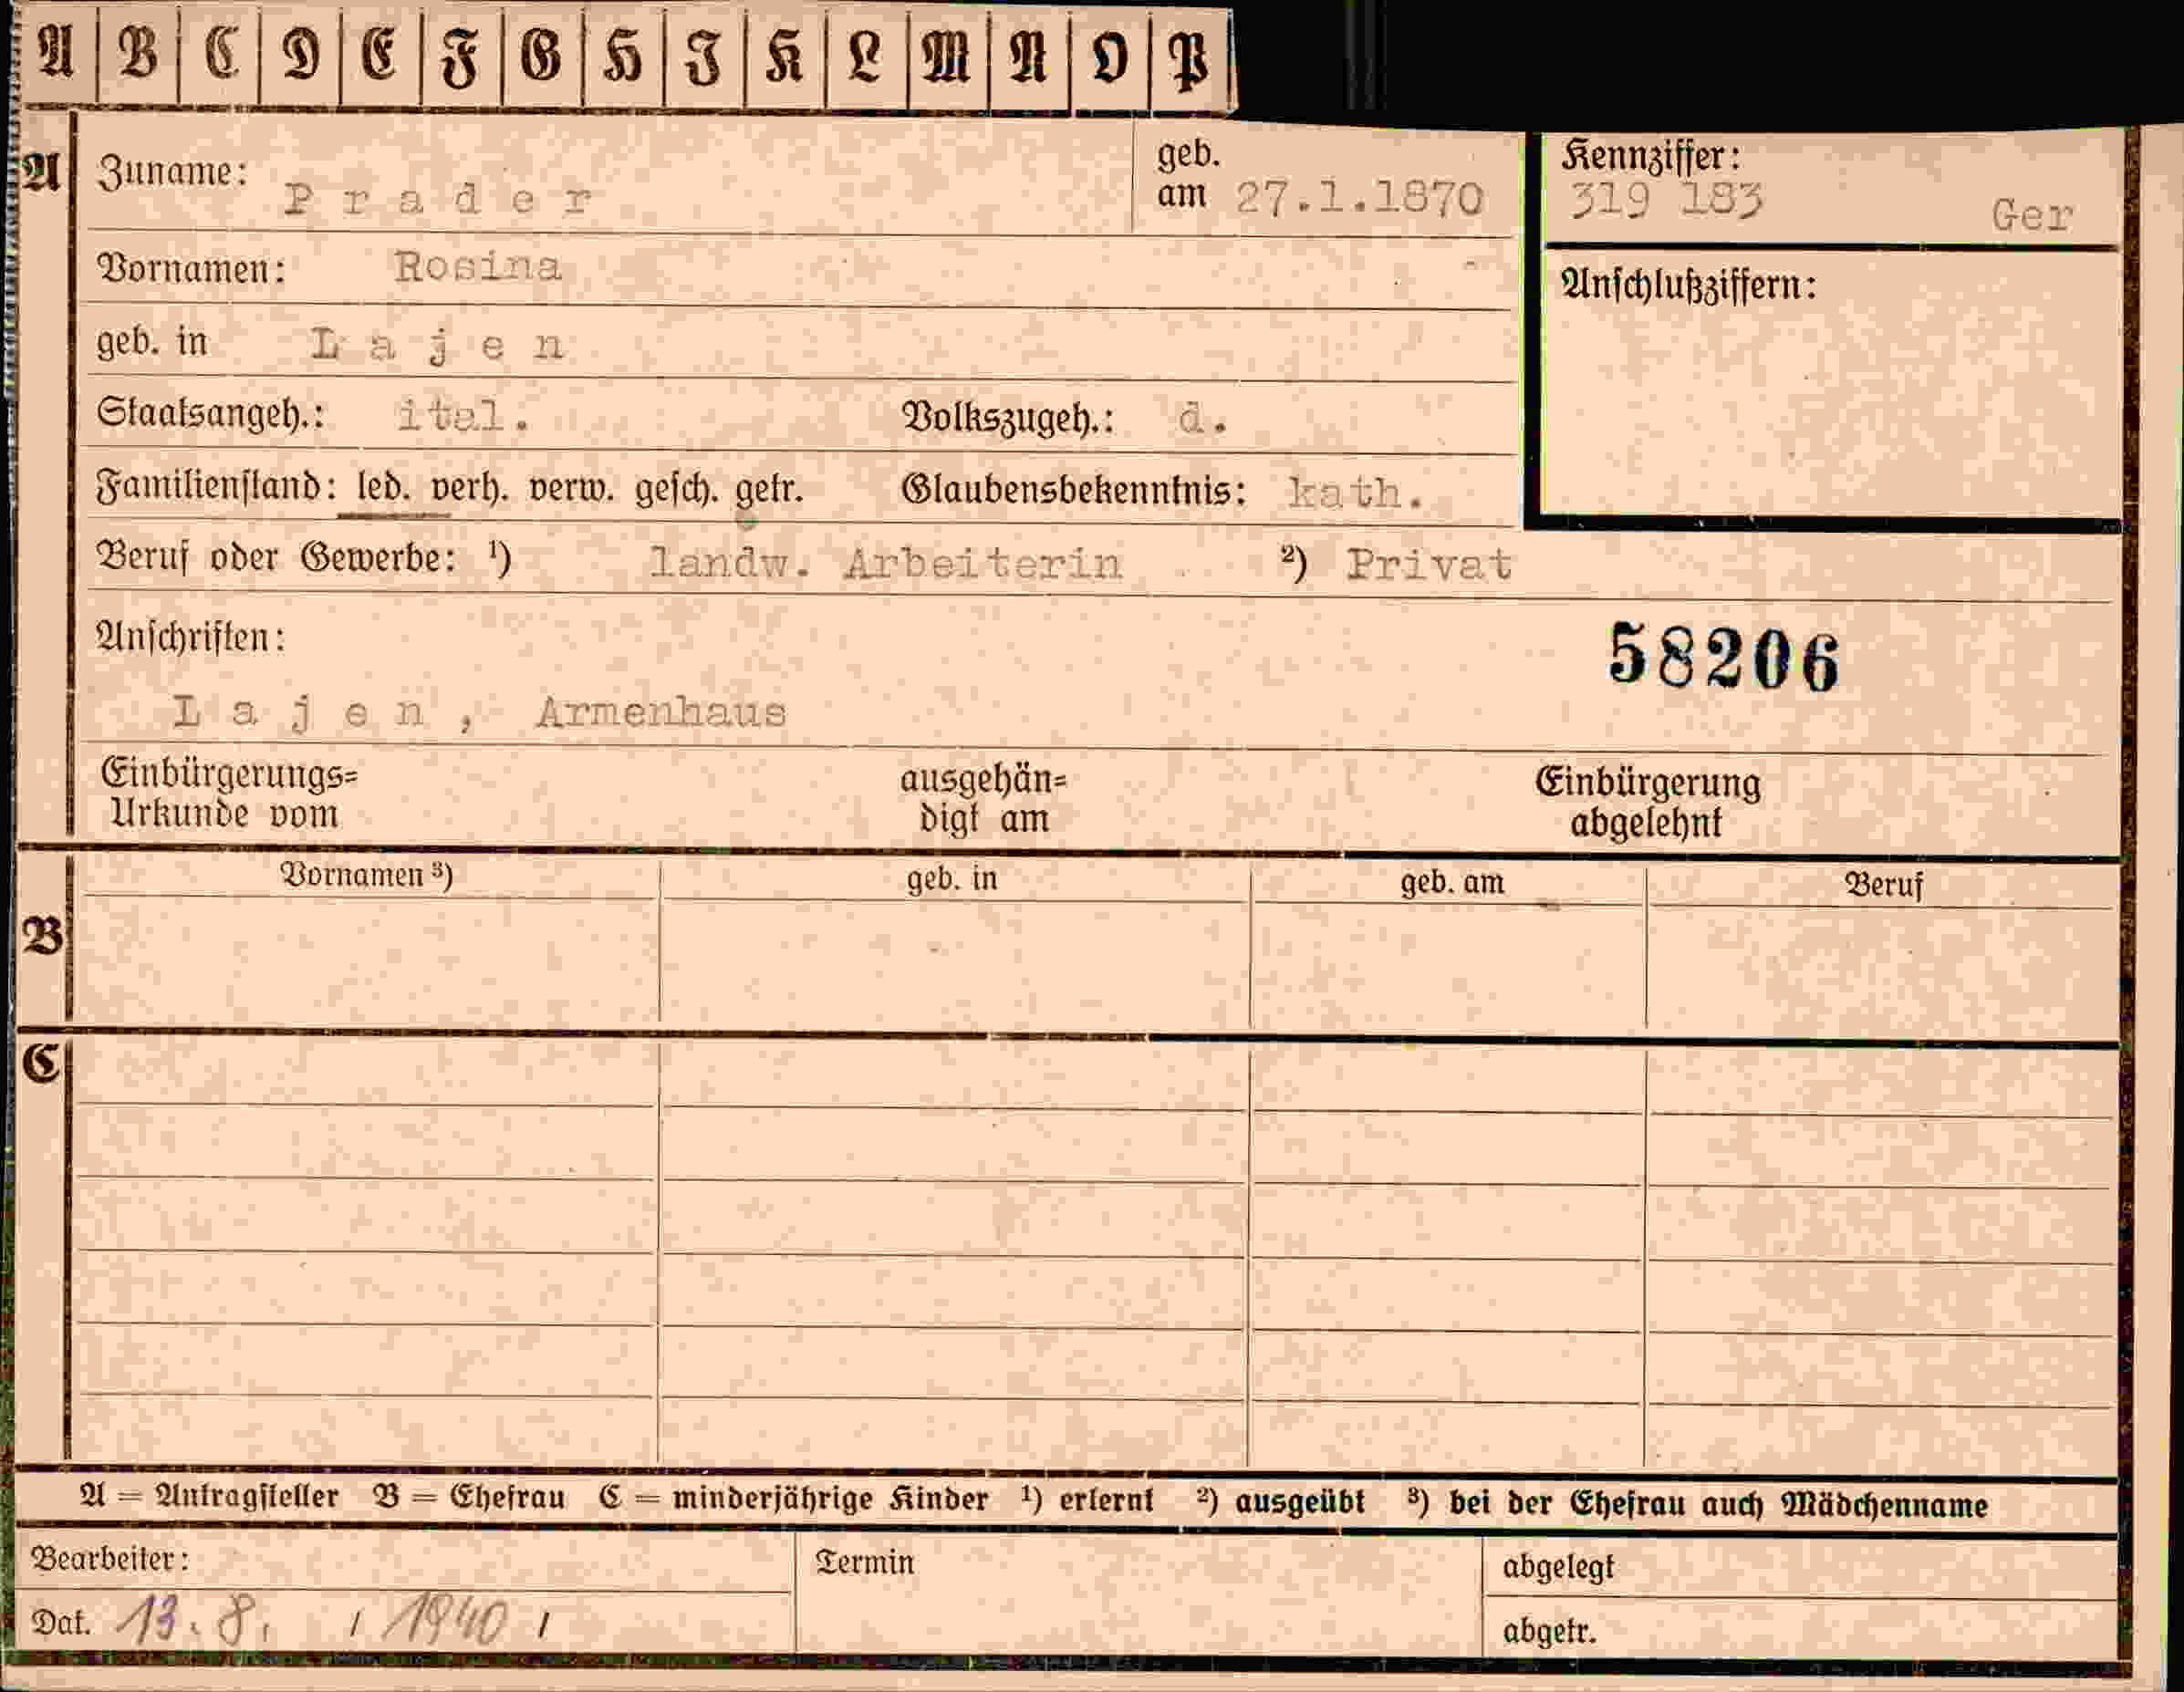 A B C D E F G H I K L M N O P
A Zuname: Prader geb. am 27.1.1870 Kennziffer: 319 183 Ger
Vornamen: Rosina Anschlußziffern:
geb. in Lajen
Staatsangeh.: ital. Volkszugeh.: d.
Familienstand: led. verh. verw. gesch. getr. Glaubensbekenntnis: kath.
Beruf oder Gewerbe: ¹) landw. Arbeiterin ²) Privat
Anschriften: 58206
Lajen, Armenhaus
Einbürgerungs= ausgehän= Einbürgerung
Urkunde vom digt am abgelehnt
Vornamen ³) geb. in geb. am Beruf
B
C
A = Antragsteller B = Ehefrau C = minderjährige Kinder ¹) erlernt ²) ausgeübt ³) bei der Ehefrau auch Mädchenname
Bearbeiter: Termin abgelegt
Dat. 13.8. / 1940 / abgetr.